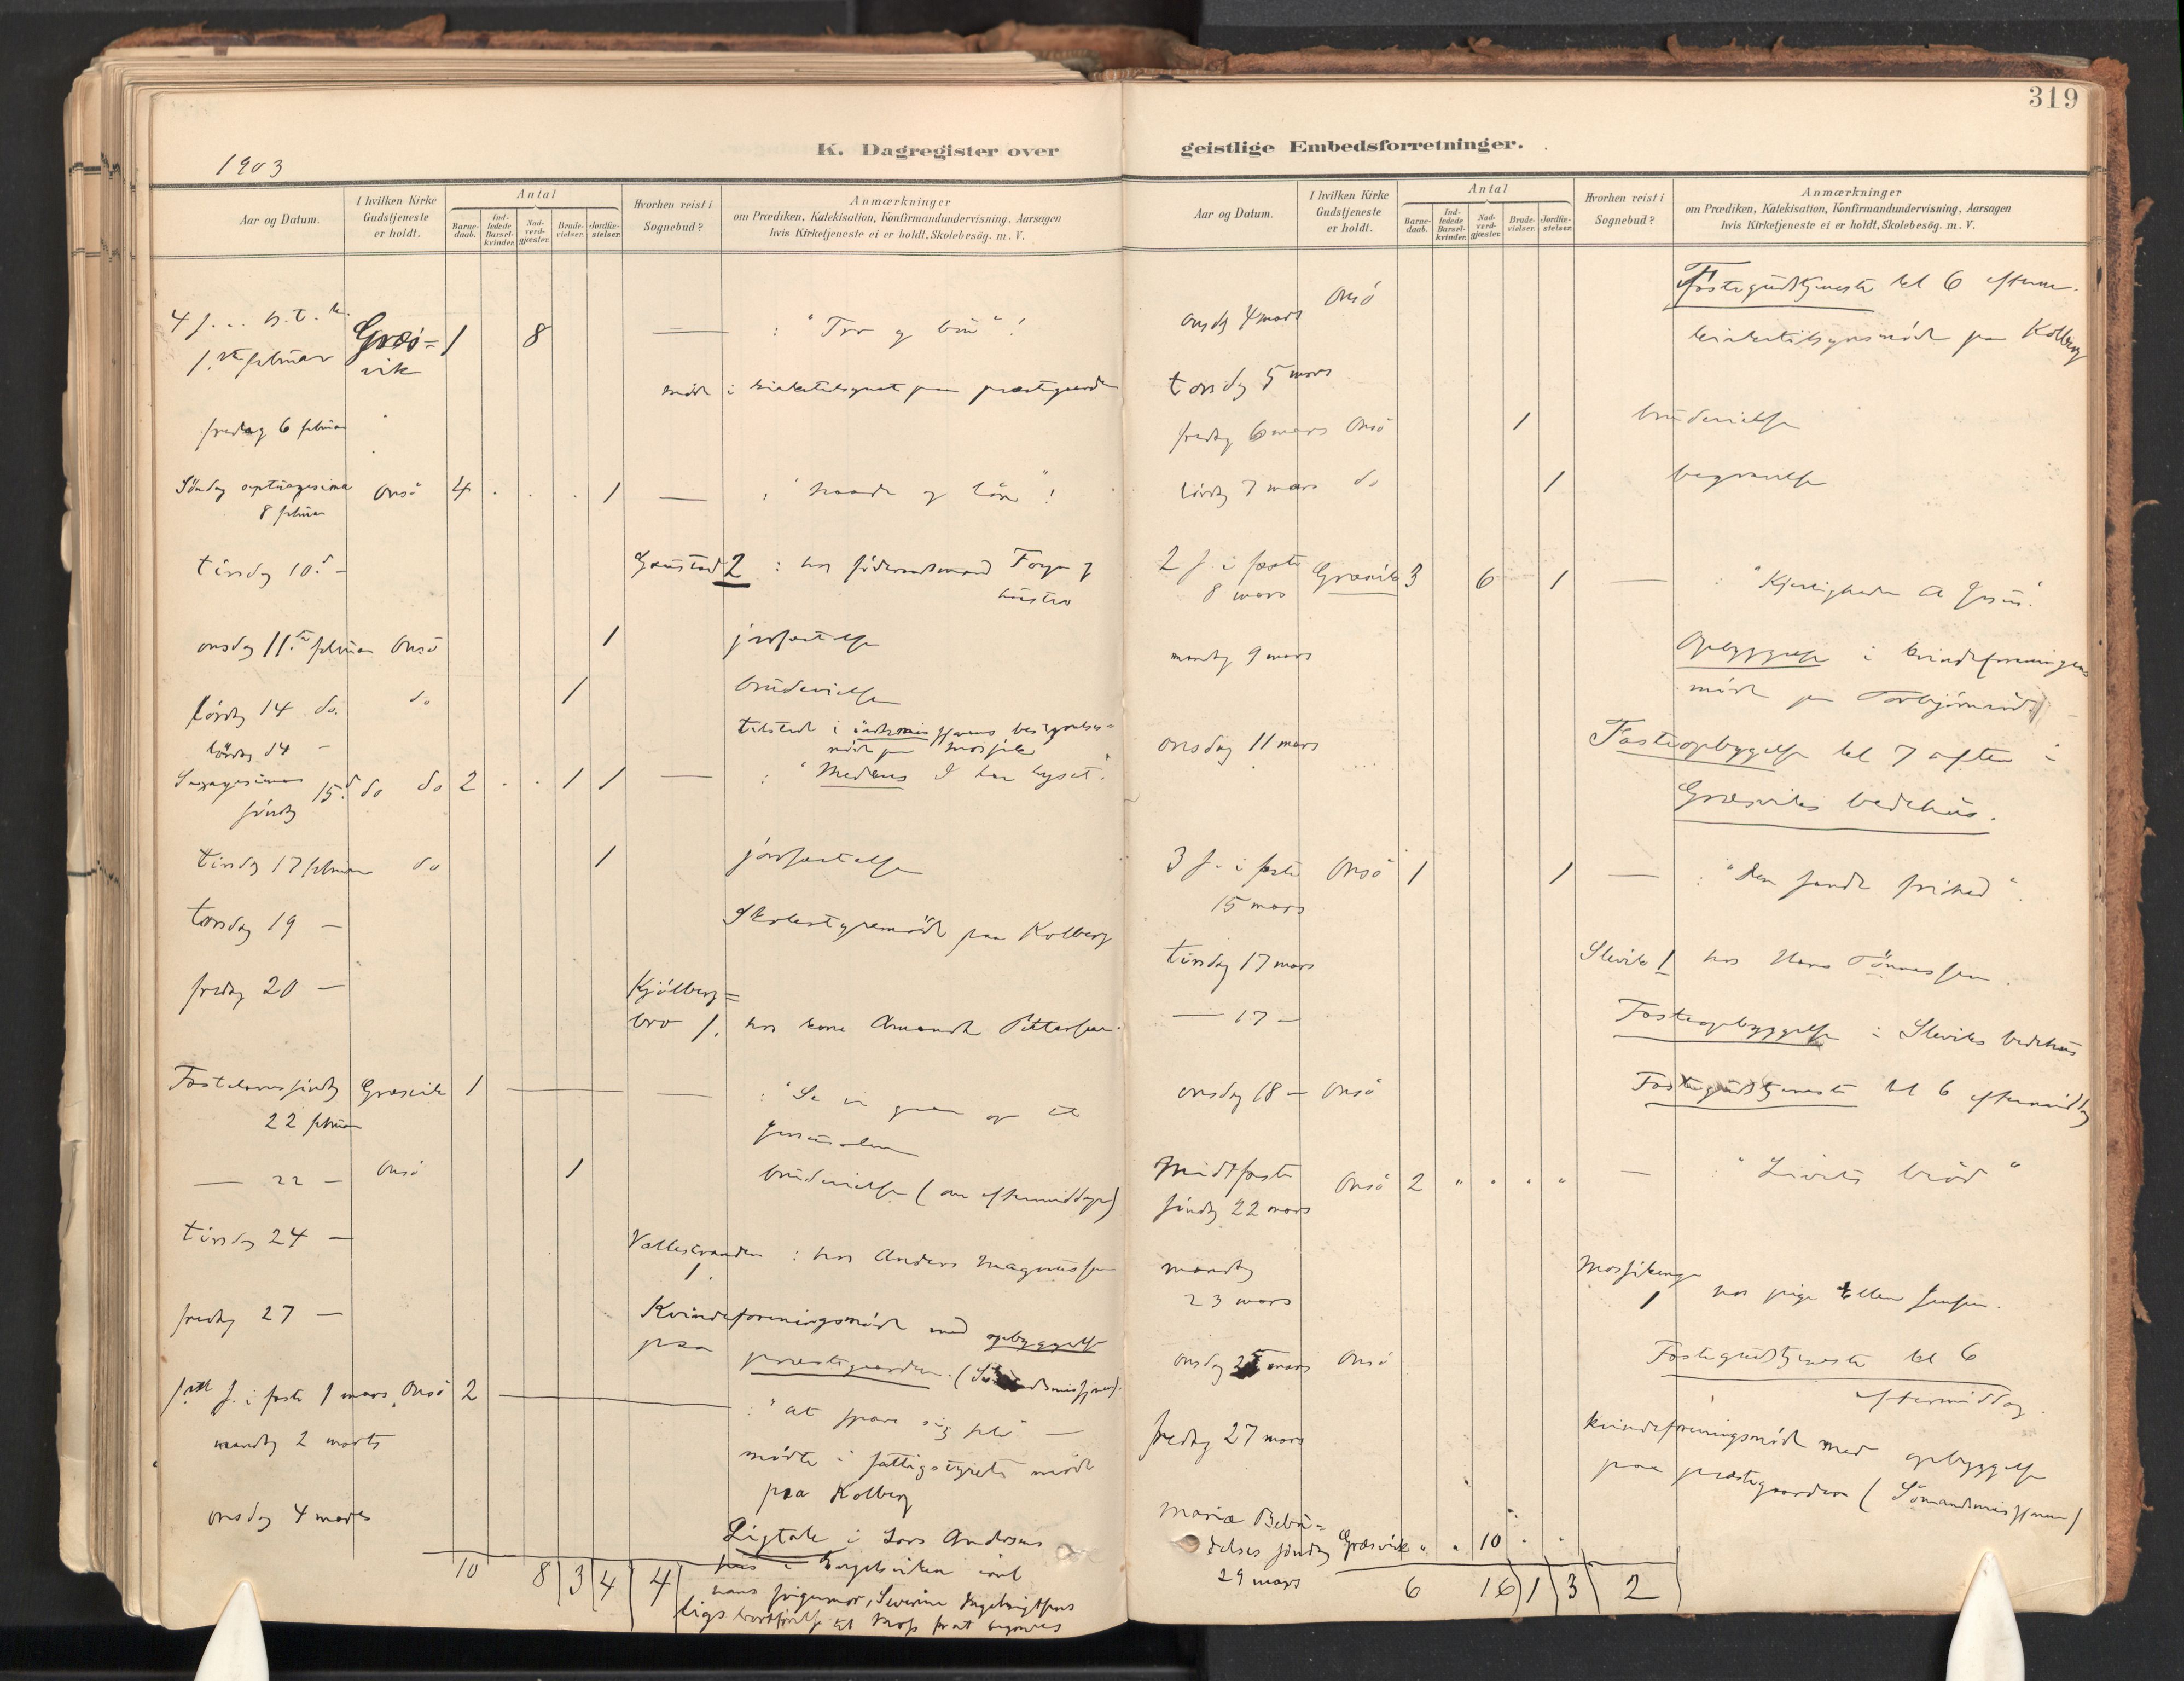 319
K. Dagregister over geistlige Embedsforretninger.
1903
Aar og Datum.
I hvilken Kirke Gudstjeneste er holdt.
Antal
Barne-daab.
Ind-ledede Barsel-kvinder.
Nad-verd-gjæster.
Brude-vielser.
Jordfæ-stelser.
Hvorhen reist i Sognebud?
Anmærkninger
om Prædiken, Katekisation, Konfirmandundervisning. Aarsagen
hvis Kirketjeneste ei er holdt, Skolebesög. m. V.
1.ste februar Græs= 1 8 — : "Tro og bön"!
vik
möde i kirketilsynet paa præstegaarden
fredag 6 februar
Söndag septuagesima Onsö 4 . . . 1 — : "Naade og lön"!
8 februar
tirsdag 10.d — Gaustad 2 : hos föderaadsmand Torger og
hustro
onsdag 11.te februar Onsö 1 jordfæstelse
lördag 14 do. do 1 brudevielse
lördag 14 —
tilstede i indremissjonens
Sexagesima
söndag 15.d do do 2 . . 1 1 — : "Medens I har lyset".
tirsdag 17 februar do 1 jordfæstelse
torsdag 19 — Skolestyremöde paa Kolberg
fredag 20 — Kjölberg=
bro 1. hos kone Amanda Pettersen.
Fastelavnssöndag Græsvik 1 — : "Se vi gaar op til
22 februar Jerusalem
— 22 — Onsö 1 brudevielse (om eftermiddagen)
tirsdag 24 — Vallestranden : hos Anders Magnussen
1
fredag 27 — Kvindeforeningsmöde med opbyggelse
paa præstegaarden.
1.ste s. i faste 1 mars. Onsö 2 — : "at spare sig selv —
mandag 2 marts mödte i fattigstyrets möde
paa Kolberg
onsdag 4 marts
Ligtale i Lars Andersens
hus i Engelsviken ved
hans svigermor, Severine Ingebrigtsens
ligs bortförelse til Moss for at begraves
10 8 3 4 4
Aar og Datum.
I hvilken Kirke Gudstjeneste er holdt.
Antal
Barne-daab.
Ind-ledede Barsel-kvinder.
Nad-verd-gjæster.
Brude-vielser.
Jordfæ-stelser.
Hvorhen reist i Sognebud?
Anmærkninger
om Prædiken, Katekisation, Konfirmandundervisning, Aarsagen
hvis Kirketjeneste ei er holdt, Skolebesög. m. V.
onsdag 4 mars Onsö Fastegudstjeneste kl 6 efterm.
torsdag 5 mars kirketilsynsmöde paa Kolberg
fredag 6 mars Onsö 1 brudevielse
lördag 7 mars do 1 begravelse
2 s. i faste Græsvik 3 6 1 — : "Kjærligheden til Jesus".
8 mars
mandag 9 mars Opbyggelse i kvindeforeningens
möde paa Torbjörnröd
onsdag 11 mars Fasteopbyggelse kl 7 aften i
Græsviks bedehus.
3 s. i faste Onsö 1 1 — : "Den sande frihed".
15 mars
tirsdag 17 mars Slevik 1 hos Hans Tönnessen.
— 17 — Fasteopbyggelse i Sleviks bedehus
onsdag 18 — Onsö Fastegudstjeneste kl 6 eftermiddag
Midtfaste Onsö 2 " " " " — : "Livets bröd"
söndag 22 mars
mandag
23 mars 1 hos pige Ellen Jensen.
onsdag 25 mars Onsö Fastegudstjeneste kl 6
eftermiddag
fredag 27 mars kvindeforeningsmöde med opbyggelse
paa præstegaarden (Sömandsmissjonen)
Mariæ Bebu=
delses söndag Græsvik " " 10 " "
29 mars
6 16 1 3 2